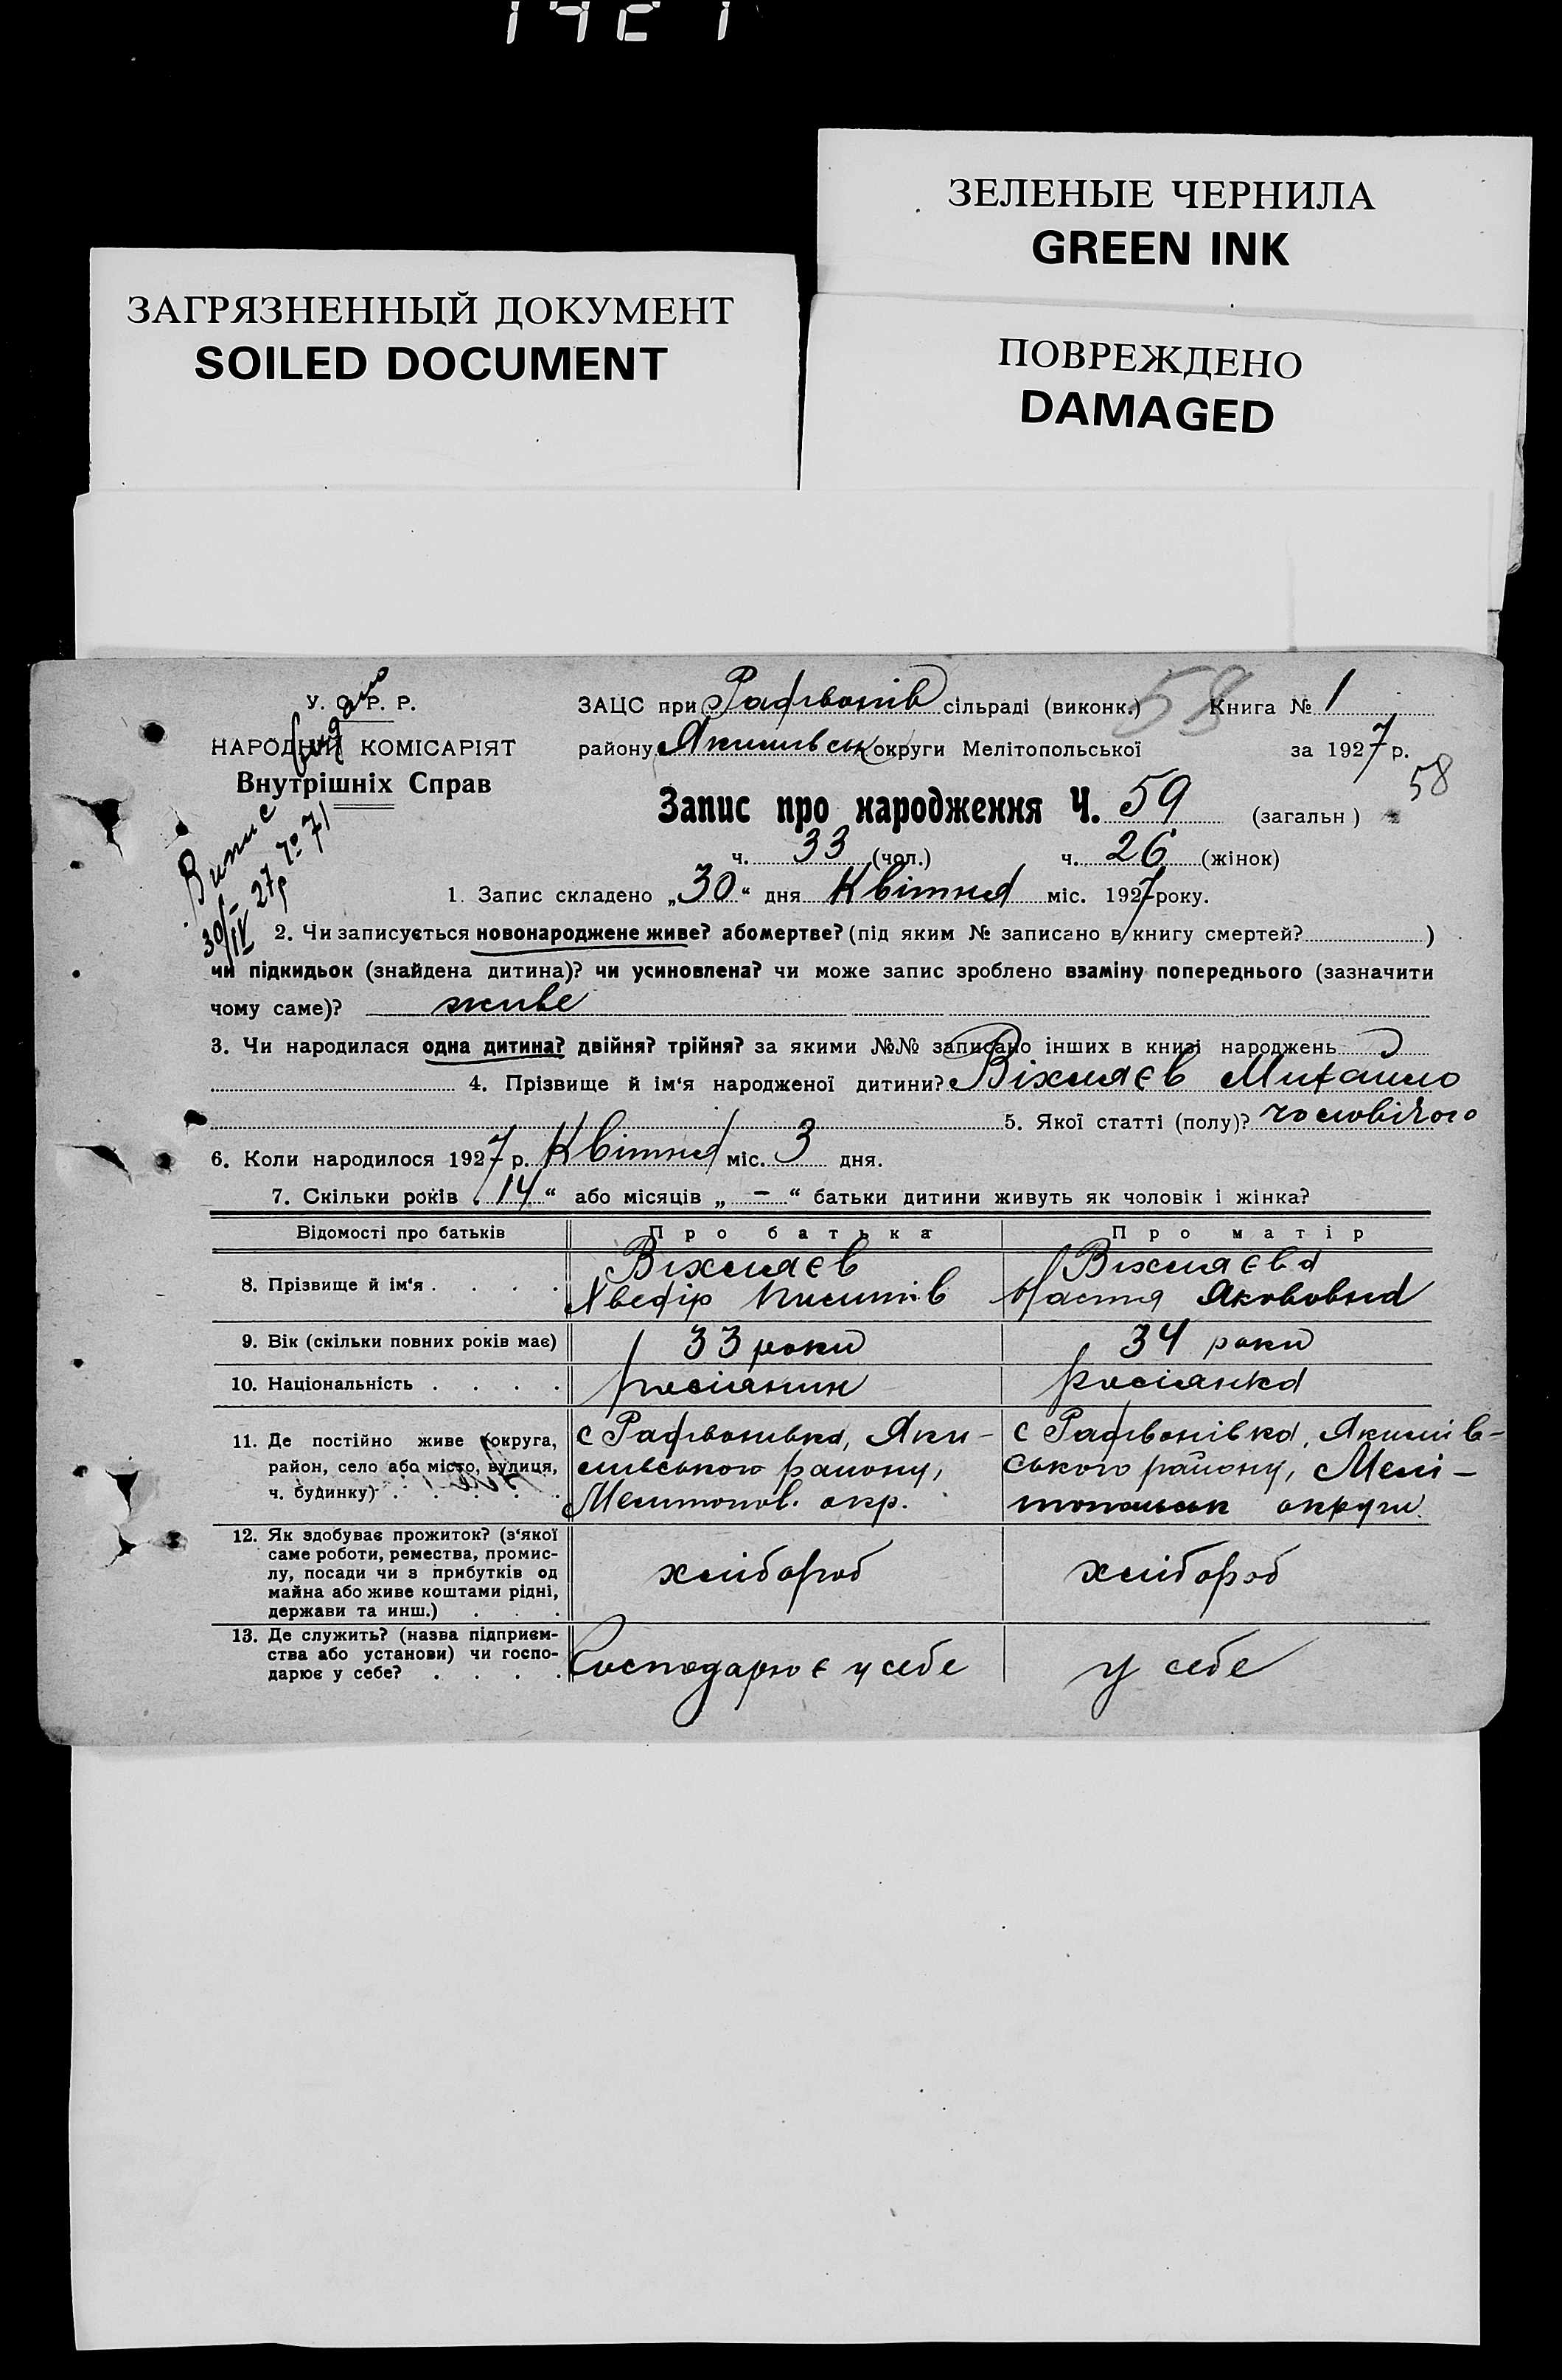 1927
ЗЕЛЕНЫЕ ЧЕРНИЛА
GREEN INK
ЗАГРЯЗНЕННЫЙ ДОКУМЕНТ
SOILED DOCUMENT
ПОВРЕЖДЕНО
DAMAGED
У. С. Р. Р.
НАРОДНИЙ КОМІСАРІЯТ
Внутрішніх Справ
Випис
30/IV 27р № 71
ЗАЦС при Радивонів сільраді (виконк.) 58 Книга № 1
району Якимівськ округи Мелітопольської за 1927 р.
58
Запис про народження Ч. 59 (загальн)
ч. 33 (чол.) ч. 26 (жінок)
1. Запис складено „30“ дня Квітня міс. 1927 року.
2. Чи записується новонароджене живе? або мертве? (під яким № записано в книгу смертей? )
чи підкидьок (знайдена дитина)? чи усиновлена? чи може запис зроблено взаміну попереднього (зазначити
чому саме)? живе
3. Чи народилася одна дитина? двійня? трійня? за якими №№ записано інших в книзі народжень
4. Прізвище й ім‘я народженої дитини? Віхляєв Михайло
5. Якої статті (полу)? чоловічого
6. Коли народилося 1927 р. Квітня міс. 3 дня.
7. Скільки років „14“ або місяців „ – “ батьки дитини живуть як чоловік і жінка?
Відомості про батьків Про батька Про матір
8. Прізвище й ім‘я . . . . . Віхляєв Віхляєва
Хведір Настя Якововна
9. Вік (скільки повних років має) 33 роки 34 роки
10. Національність . . . . росіянин росіянка
11. Де постійно живе (округа, с Радивонивка, Яки- с Радивонівка, Якимів-
район, село або місто, вулиця, мивського району, ського району, Мелі-
ч. будинку) . . . . . . Мелитопов. окр. топольск округи.
12. Як здобуває прожиток? (з‘якої
саме роботи, ремества, промис-
лу, посади чи з прибутків од хлібороб хлібороб
майна або живе коштами рідні,
держави та инш.) . . .
13. Де служить? (назва підприєм-
ства або установи) чи госпо- Господарює у себе у себе
дарює у себе? . . . .